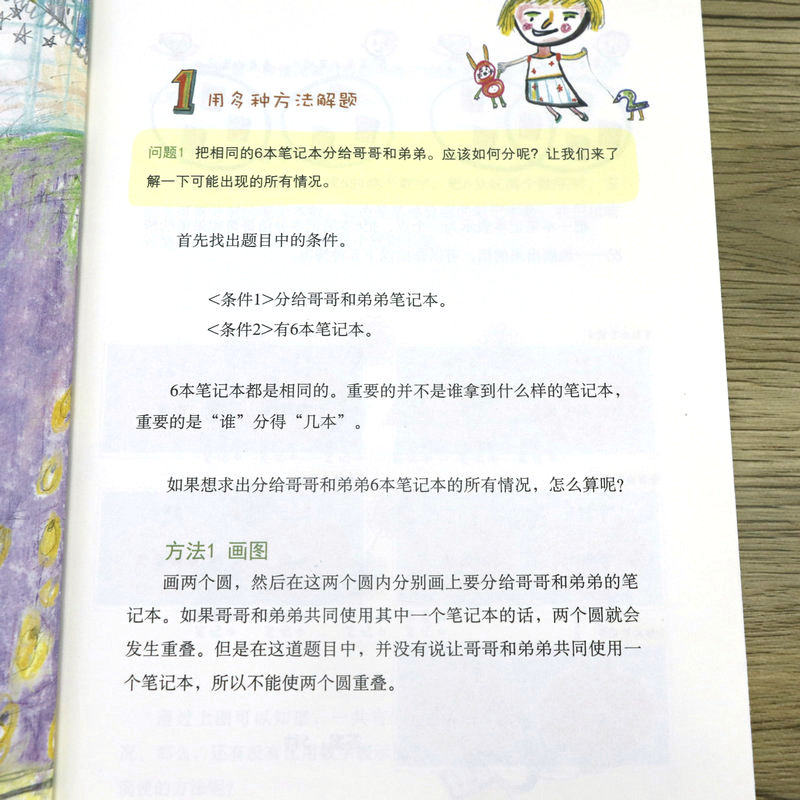 1 用多种方法解题
问题1 把相同的6本笔记本分给哥哥和弟弟。应该如何分呢？让我们来了
解一下可能出现的所有情况。
首先找出题目中的条件。
<条件1>分给哥哥和弟弟笔记本。
<条件2>有6本笔记本。
6本笔记本都是相同的。重要的并不是谁拿到什么样的笔记本，
重要的是“谁”分得“几本”。
如果想求出分给哥哥和弟弟6本笔记本的所有情况，怎么算呢？
方法1 画图
画两个圆，然后在这两个圆内分别画上要分给哥哥和弟弟的笔
记本。如果哥哥和弟弟共同使用其中一个笔记本的话，两个圆就会
发生重叠。但是在这道题目中，并没有说让哥哥和弟弟共同使用一
个笔记本，所以不能使两个圆重叠。